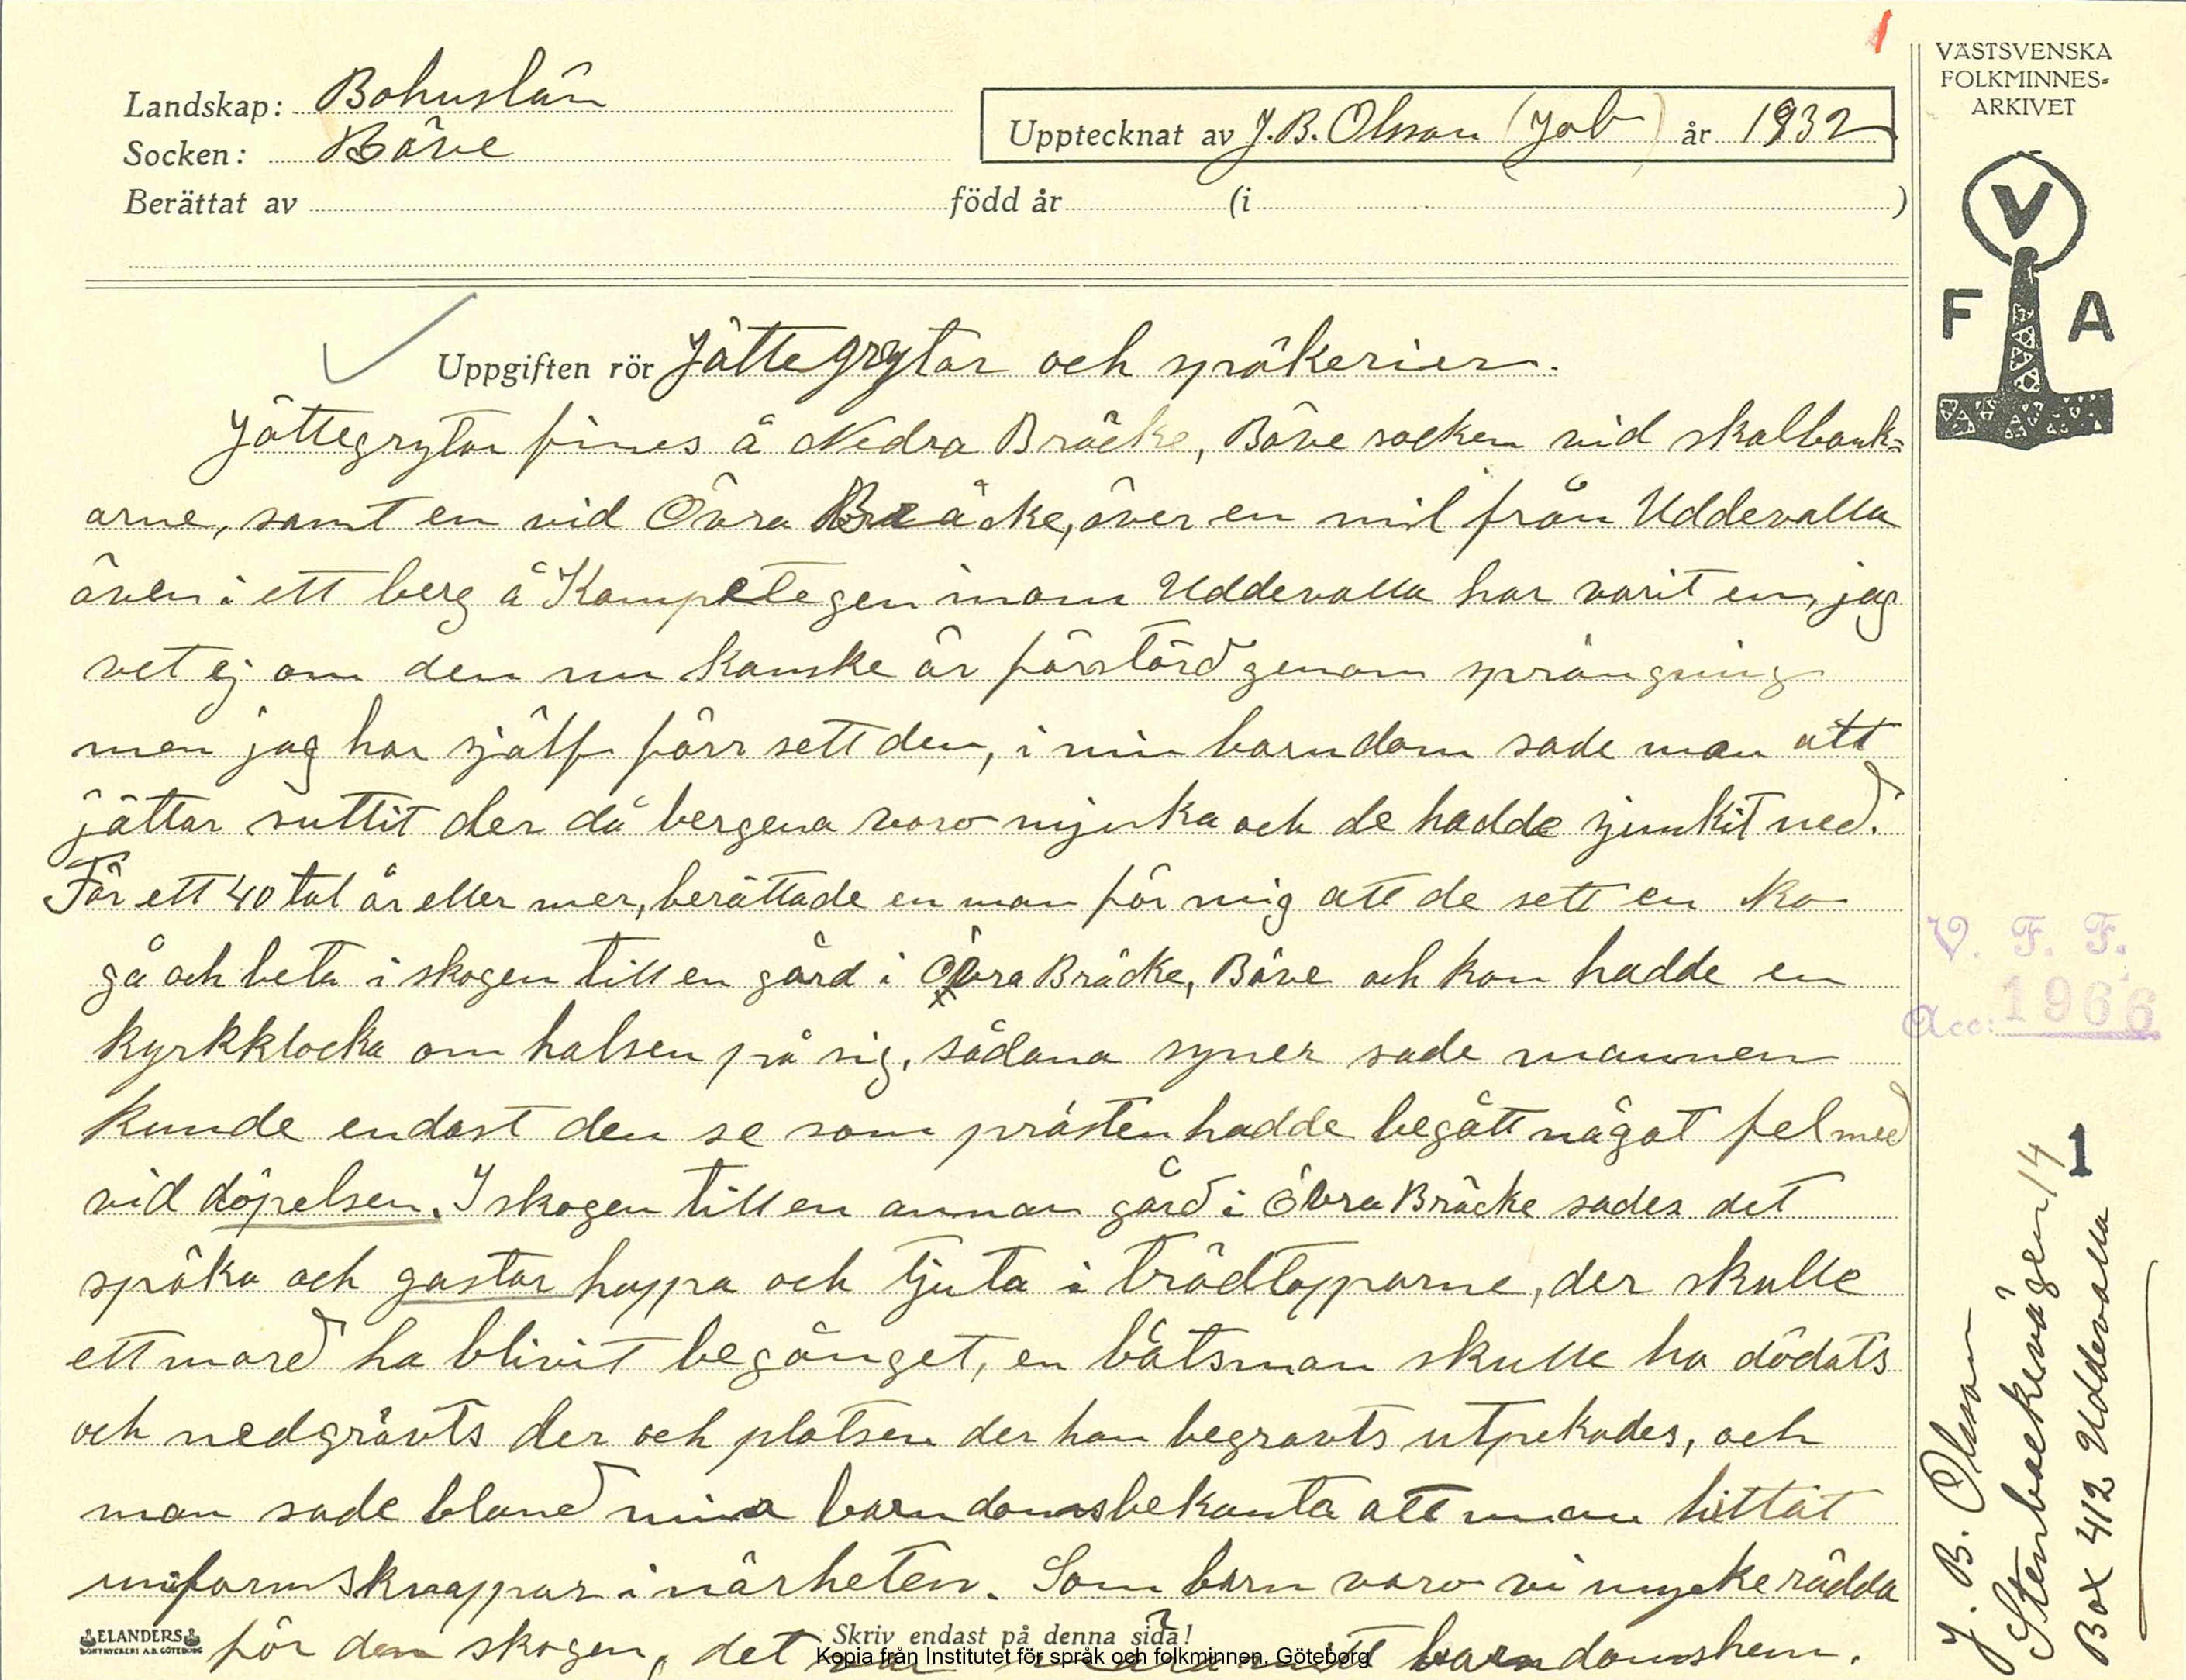 1
VÄSTSVENSKA
FOLKMINNES=
ARKIVET
Landskap: Bohuslän
Socken: Bäve
Upptecknat av J. B. Olsson (Job) år 1932
Berättat av född år (i )
V
F A
Uppgiften rör Jättegrytor och spökerier.
Jättegrytor finns å Nedra Bräcke, Bäve socken vid skalbank=
arne, samt en vid Övra Bräcke, över en mil från Uddevalla
även i ett berg å Kampetegen inom Uddevalla har varit en, jag
vet ej om den nu kanske är förstörd genom sprängning
men jag har själf förr sett den, i min barndom sade man att
jättar suttit der då bergena voro mjuka och de hadde sjunkit ned.
För ett 40 tal år eller mer, berättade en man för mig att de sett en ko
gå och beta i skogen till en gård i Övra Bräcke, Bäve och kon hadde en
kyrkklocka om halsen på sig, sådana syner sade mannen
kunde endast den se som prästen hadde begått något fel med
vid döpelsen. I skogen till en annan gård i Övra Bräcke sades det
spöka och gastar hoppa och tjuta i trädtopparne, der skulle
ett mord ha blivit begånget, en båtsman skulle ha dödats
och nedgrävts der och platsen der han begravts utpekades, och
man sade bland mina barndomsbekanta att man hittat
uniformsknappar i närheten. Som barn voro vi mycke rädda
för den skogen, det var nära mitt barndomshem.
V. F. F.
Acc: 1966
1
J. B. Olsson
Stenbackevägen 14
Box 412 Uddevalla
ELANDERS
BOKTRYCKERI A.B. GÖTEBORG
Skriv endast på denna sida!
Kopia från Institutet för språk och folkminnen, Göteborg